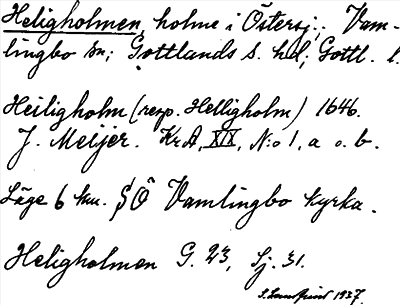 Heligholmen, holme i Östersj.. Vam-
lingbo sn; Gottlands S. hd; Gottl. l.
Heiligholm (resp. Helligholm) 1646.
J. Meijer. Kr.A, XIX, N:o 1, a o. b.
Läge 6 km. SÖ Vamlingbo kyrka.
Heligholmen G. 23, Sj. 31.
1937.